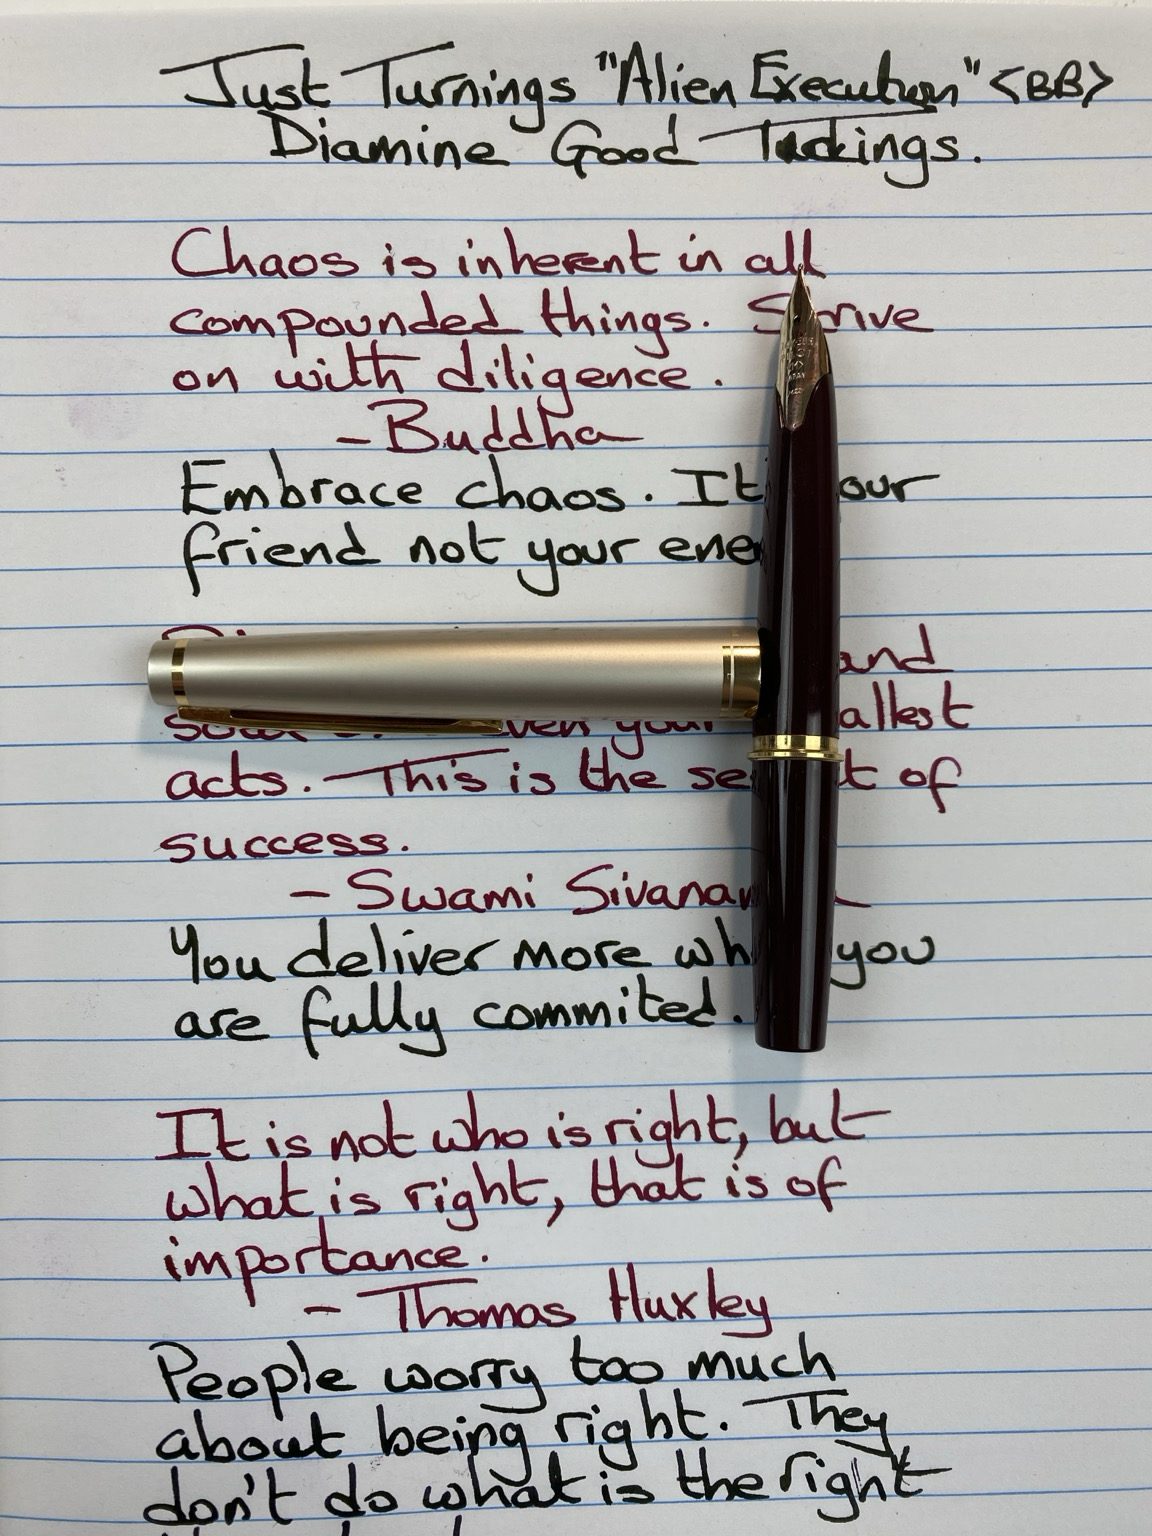 Just Turnings "Alien Execution" <BB>
Diamine Good Tidings.
Chaos is inherent in all
compounded things. Strive
on with diligence.
-Buddha
Embrace chaos. It our
friend not your ene
and
even your allest
acts. This is the se t of
success.
- Swami Sivanan
You deliver more wh you
are fully commited.
It is not who is right, but
what is right, that is of
importance.
- Thomas Huxley
People worry too much
about being right. They
don't do what is the right